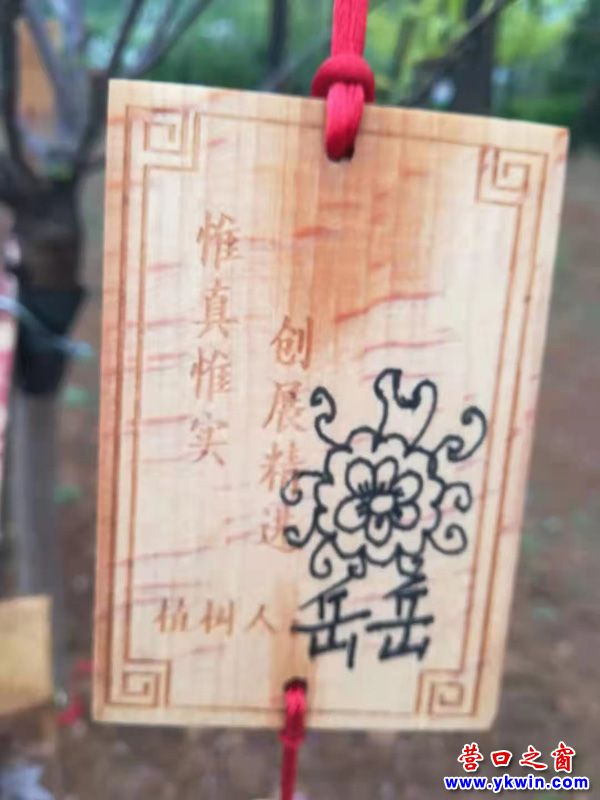 惟真惟实
创展精进
植树人：岳岳
营口之窗
www.ykwin.com